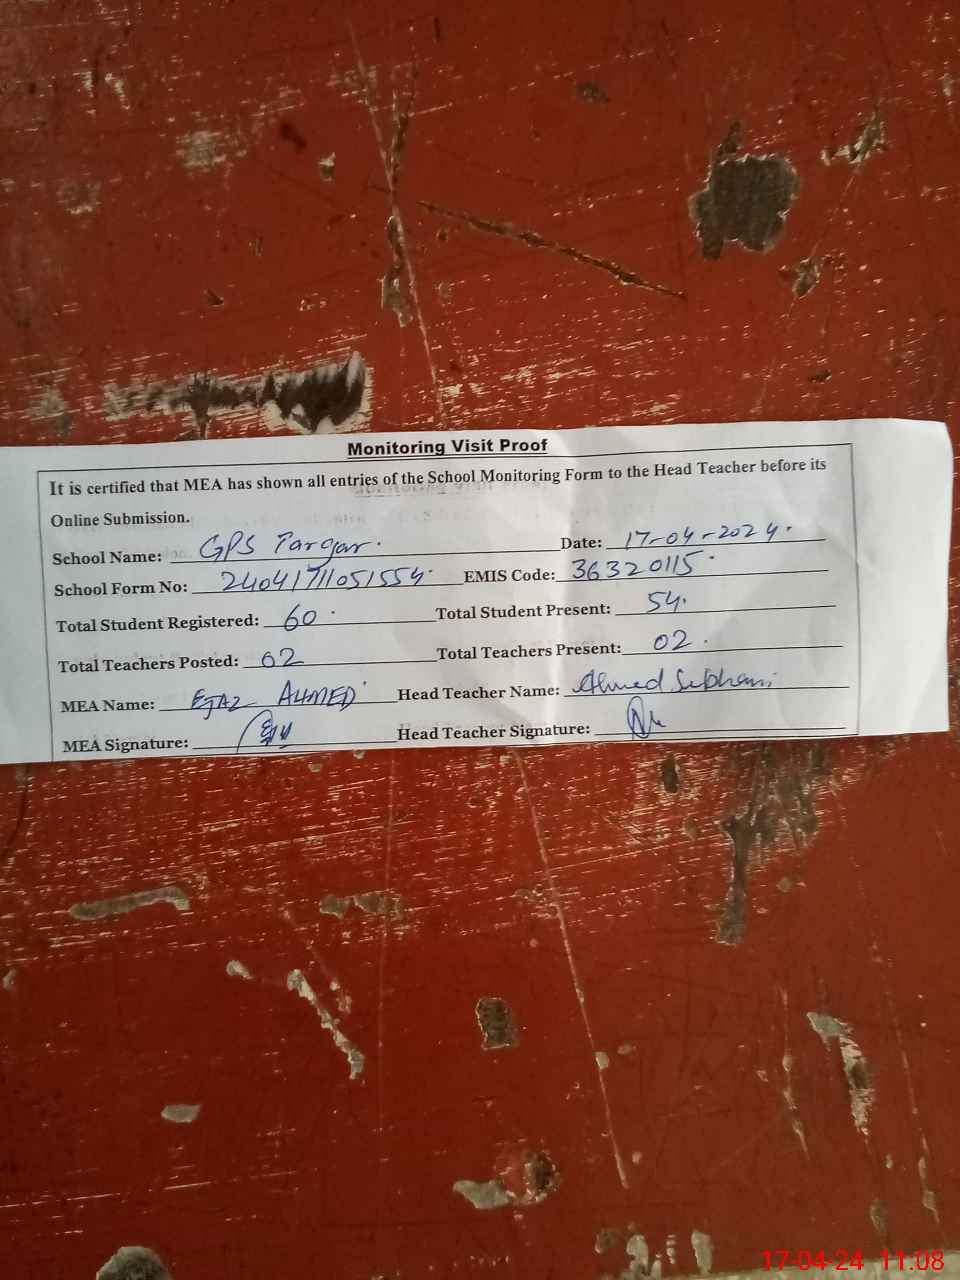 Monitoring Visit Proof
It is certified that MEA has shown all entries of the School Monitoring Form to the Head Teacher before its
Online Submission.
School Name: GPS Targar. Date: 17-04-2024.
School Form No: 24041711051554. EMIS Code: 36320115
Total Student Registered: 60 Total Student Present: 54.
Total Teachers Posted: 02 Total Teachers Present: 02.
MEA Name: EJAZ AHMED Head Teacher Name: Ahmed Subhani
MEA Signature: Head Teacher Signature:
17-04-24 11:08